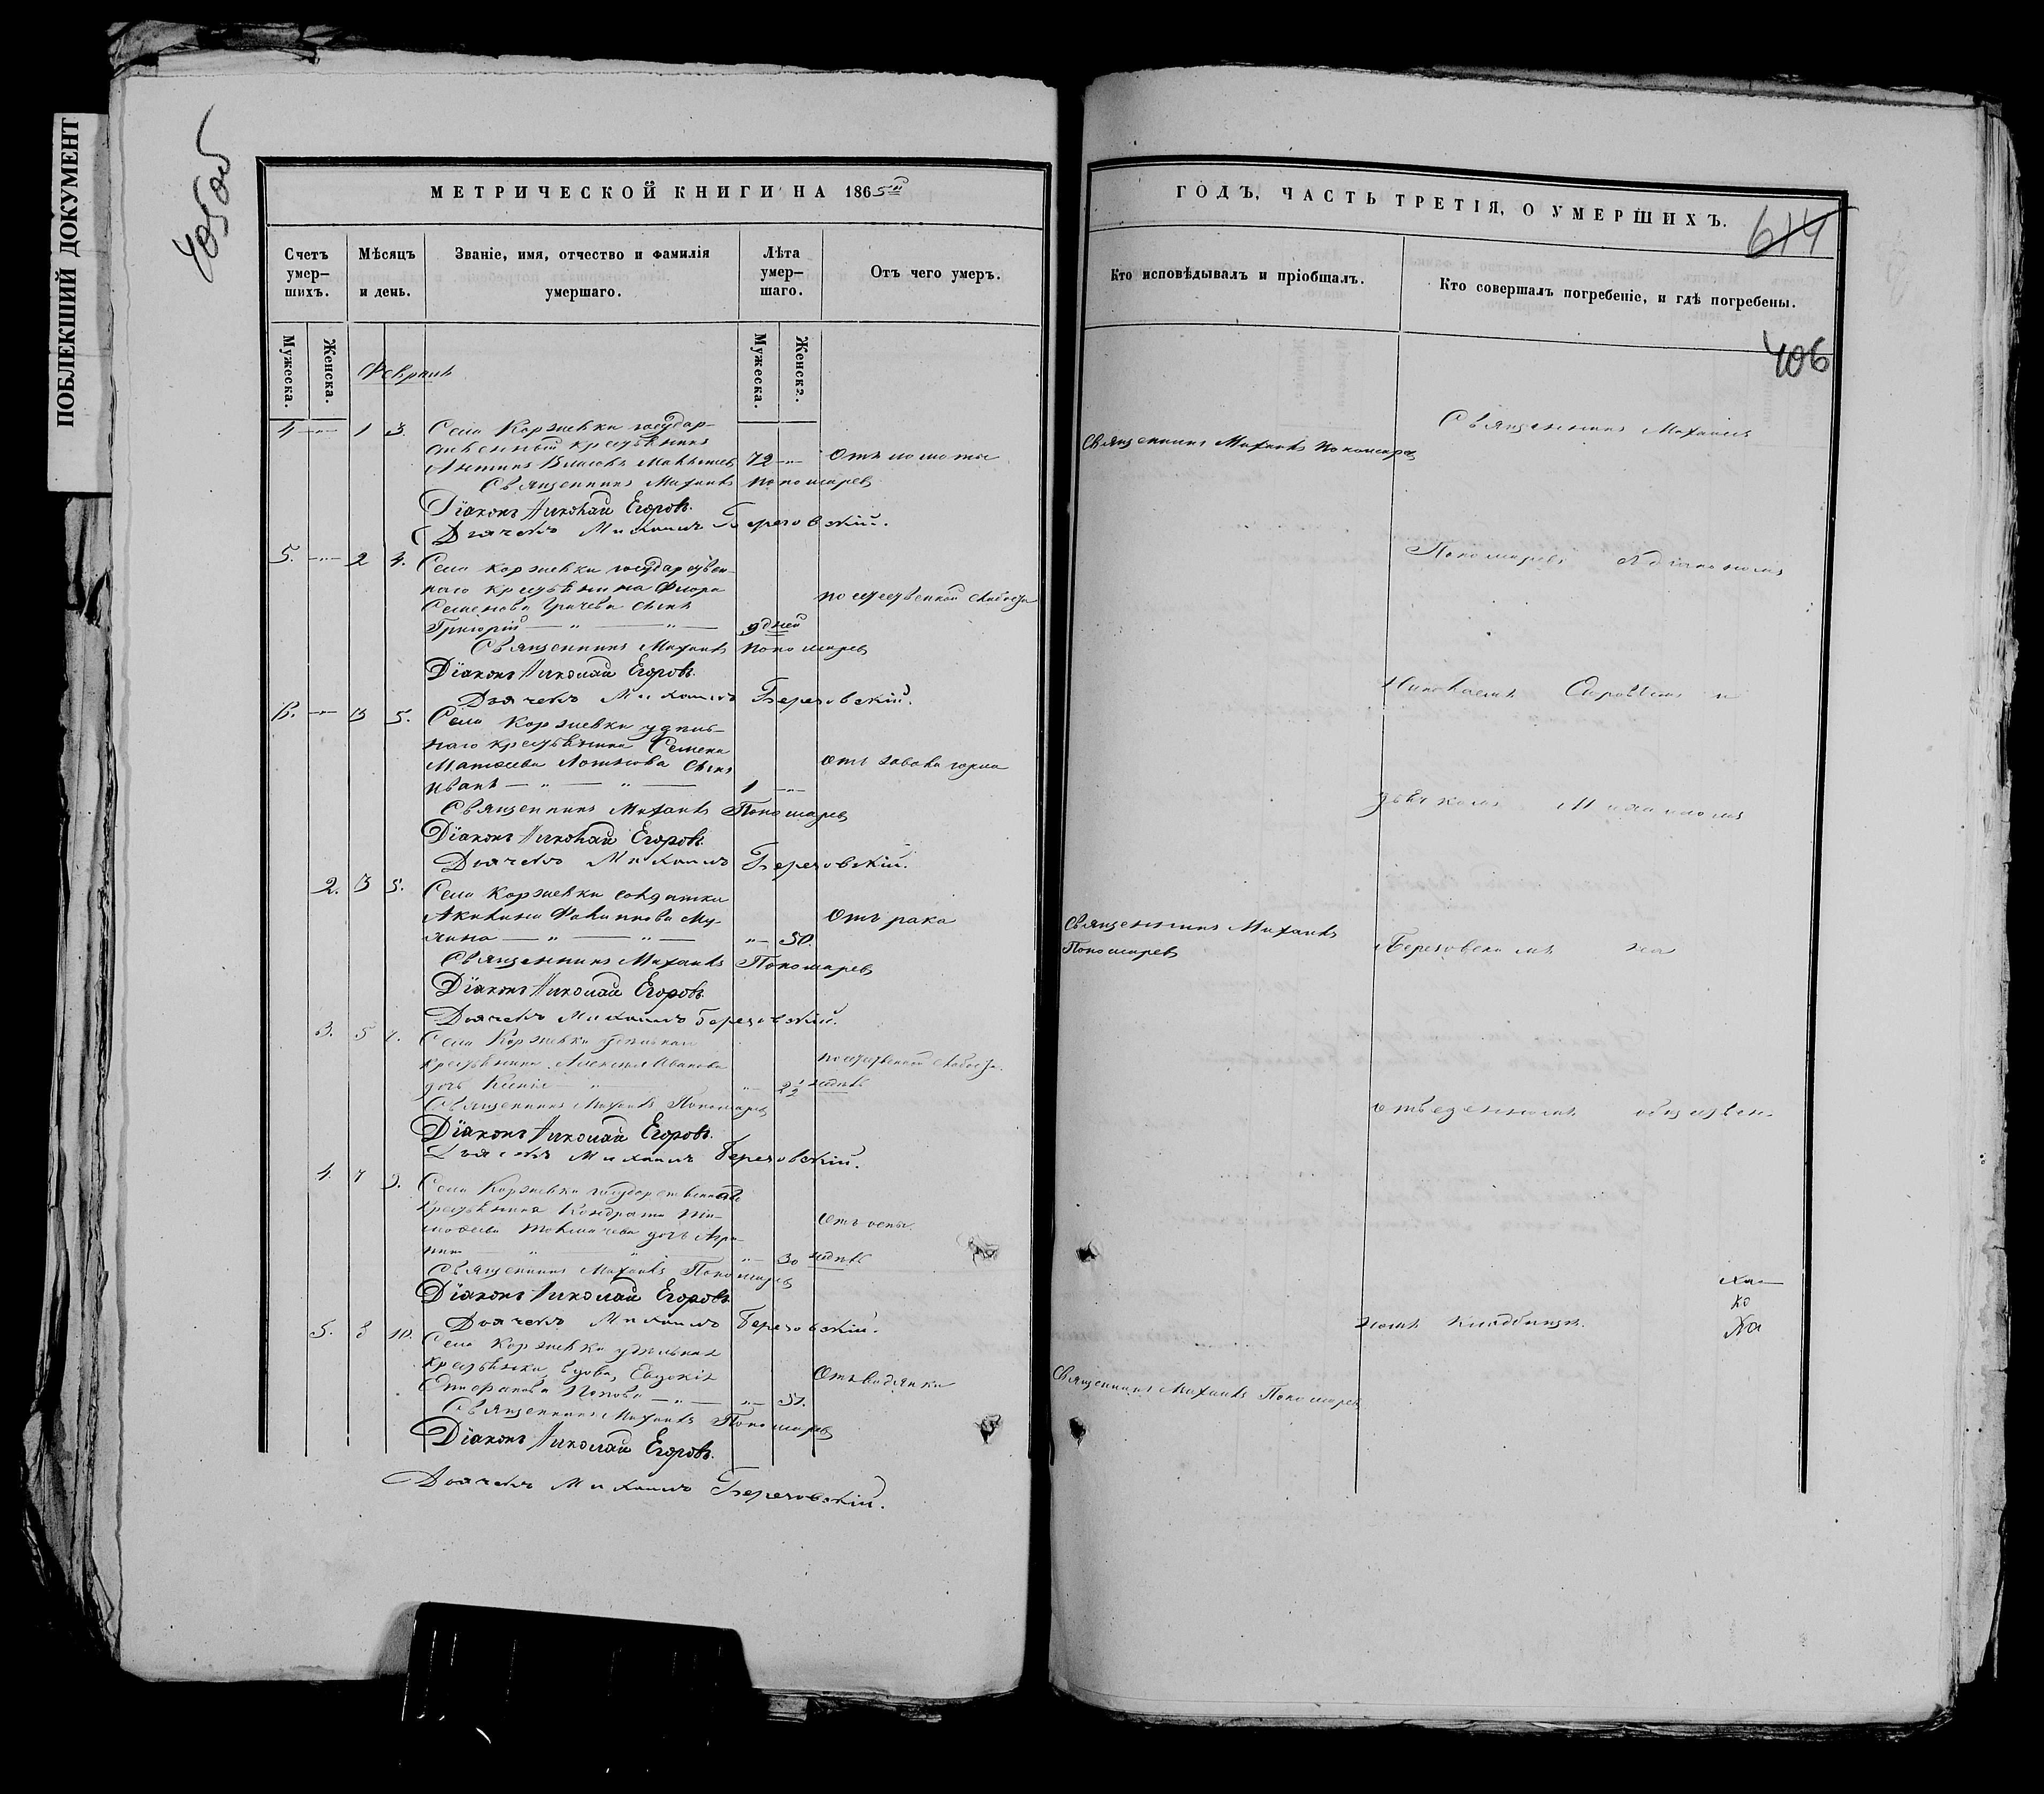 ПОБЛЕКШИЙ ДОКУМЕНТ
405об
МЕТРИЧЕСКОЙ КНИГИ НА 1865й
Счетъ умер-шихъ.
Мѣсяцъ и день.
Званіе, имя, отчество и фамилія умершаго.
Лѣта умер-шаго.
Отъ чего умеръ.
Мужеска.
Женска.
Мужеска.
Женска.
Февраль
4 — 1 3. Села Коржевки государ-
ственный крестьянинъ
72 — Отъ ломоты
Священникъ Михаилъ Пономаревъ
Діаконъ Николай Егоровъ.
Дьячекъ Михаилъ Березовскій.
5. — 2 4. Села Коржевки государствен-
наго крестьянина Флора
Семенова Грачева сынъ
по естественной слабости
Григорій — " — " — 9 дней
Священникъ Михаилъ Пономаревъ
Діаконъ Николай Егоровъ.
Дьячекъ Михаилъ Березовскій.
6. — 3 5. Села Коржевки удѣль-
наго крестьянина Семена
сынъ
Отъ завала горла
Иванъ — " — " — 1 —
Священникъ Михаилъ Пономаревъ
Діаконъ Николай Егоровъ.
Дьячекъ Михаилъ Березовскій.
2. 3 5. Села Коржевки солдатка
Акилина Филиппова Му-
Отъ рака
хина — " — " — " — 50.
Священникъ Михаилъ Пономаревъ
Діаконъ Николай Егоровъ.
Дьячекъ Михаилъ Березовскій.
3. 5 7. Села Коржевки
крестьянина Алексея Иванова
по естественной слабости.
дочь Ксенія — " — 2 1/2 недѣль
Священникъ Михаилъ Пономаревъ
Діаконъ Николай Егоровъ.
Дьячекъ Михаилъ Березовскій.
4. 7 9. Села Коржевки государственнаго
крестьянина Кондратія Ти-
мофеева Толмачева дочь Агри-
Отъ оспы.
" — 30 недѣль
Священникъ Михаилъ Пономаревъ
Діаконъ Николай Егоровъ.
Дьячекъ Михаилъ Березовскій.
5. 8 10. Села Коржевки удѣльная
крестьянка, вдова, Евдокія
Отъ водянки
Попова — " — " — 57.
Священникъ Михаилъ Пономаревъ
Діаконъ Николай Егоровъ.
Дьячекъ Михаилъ Березовскій.
ГОДЪ, ЧАСТЬ ТРЕТІЯ, О УМЕРШИХЪ.
614
Кто исповѣдывалъ и пріобщалъ.
Кто совершалъ погребеніе, и гдѣ погребены.
406
Священникъ Михаилъ Пономаревъ
Священникъ Михаилъ
Пономаревъ съ діакономъ
Николаемъ Егоровымъ и
дьячкомъ Михаиломъ
Священникъ Михаилъ
Пономаревъ
Березовскимъ на
отведенномъ обществен-
номъ кладбищѣ.
Священникъ Михаилъ Пономаревъ